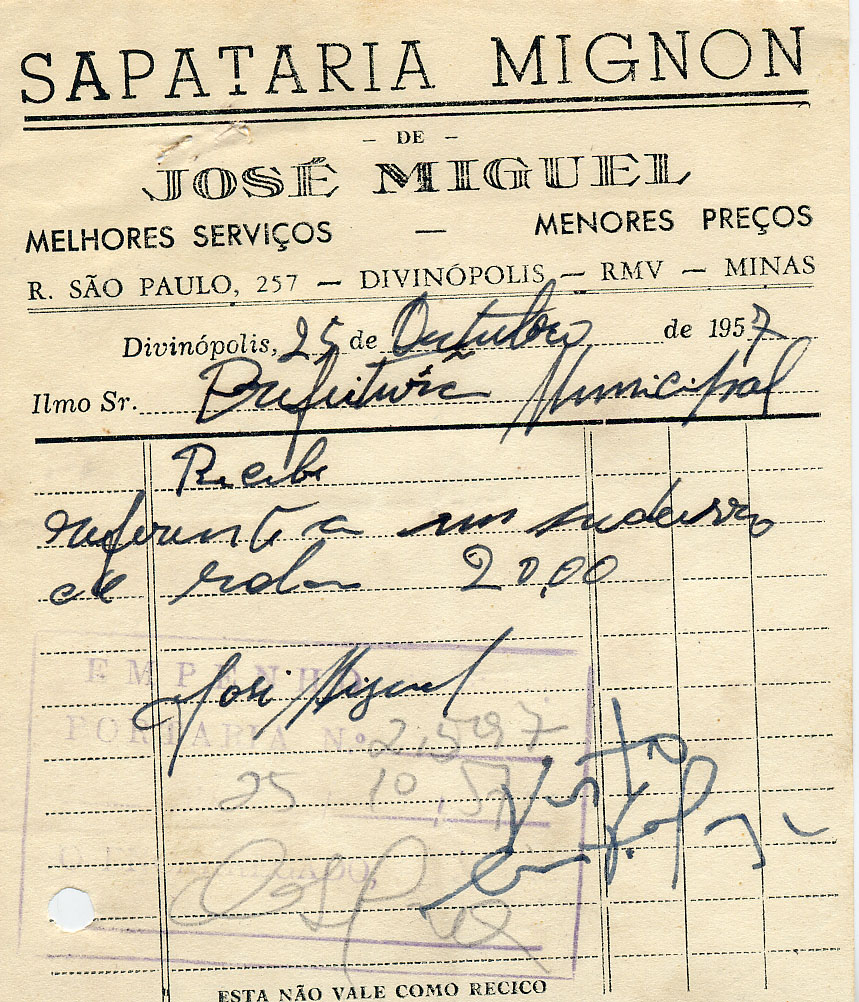 SAPATARIA MIGNON
– DE –
JOSÉ MIGUEL
MELHORES SERVIÇOS — MENORES PREÇOS
R. SÃO PAULO, 257 — DIVINÓPOLIS — RMV — MINAS
Divinópolis, 25 de Outubro de 1957
Ilmo Sr. Prefeitura Municipal
Recibe
referente a um
de 20,00
José Miguel
EMPENHO
PORTARIA Nº 2,597
25 10 57
O ENCARREGADO,
Visto
ESTA NÃO VALE COMO RECICO